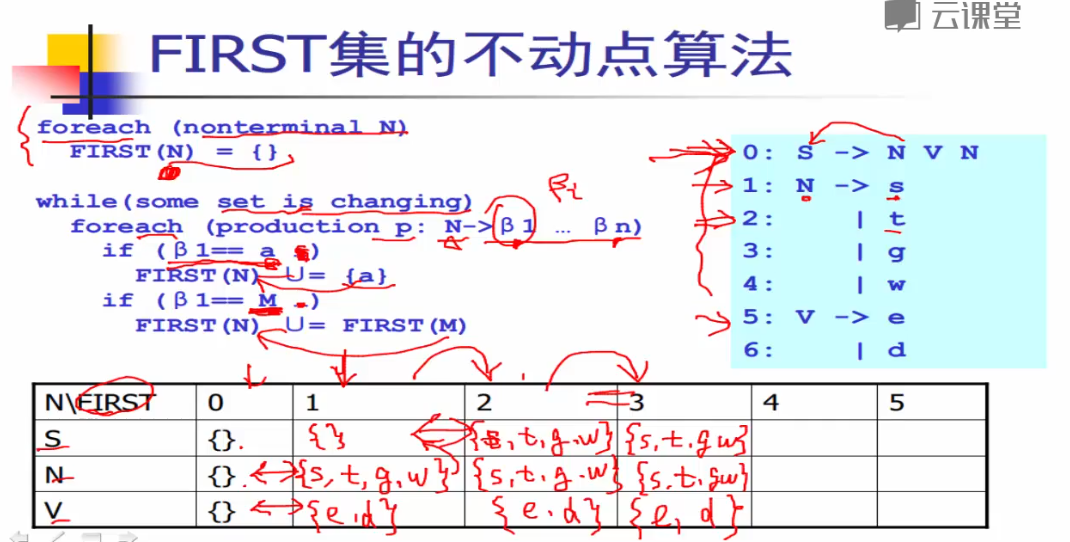 云课堂
FIRST集的不动点算法
foreach (nonterminal N)
FIRST(N) = {}
while(some set is changing)
foreach (production p: N->β1 … βn)
βi
if (β1== a …)
FIRST(N) ∪= {a}
if (β1== M …)
FIRST(N) ∪= FIRST(M)
0: S -> N V N
1: N -> s
2: | t
3: | g
4: | w
5: V -> e
6: | d
N\FIRST 0 1 2 3 4 5
S {} {} {s,t,g.w} {s,t.gw}
N {} {s,t,g,w} {s,t.g.w} {s.t.gw}
V {} {e.d} {e.d} {e,d}